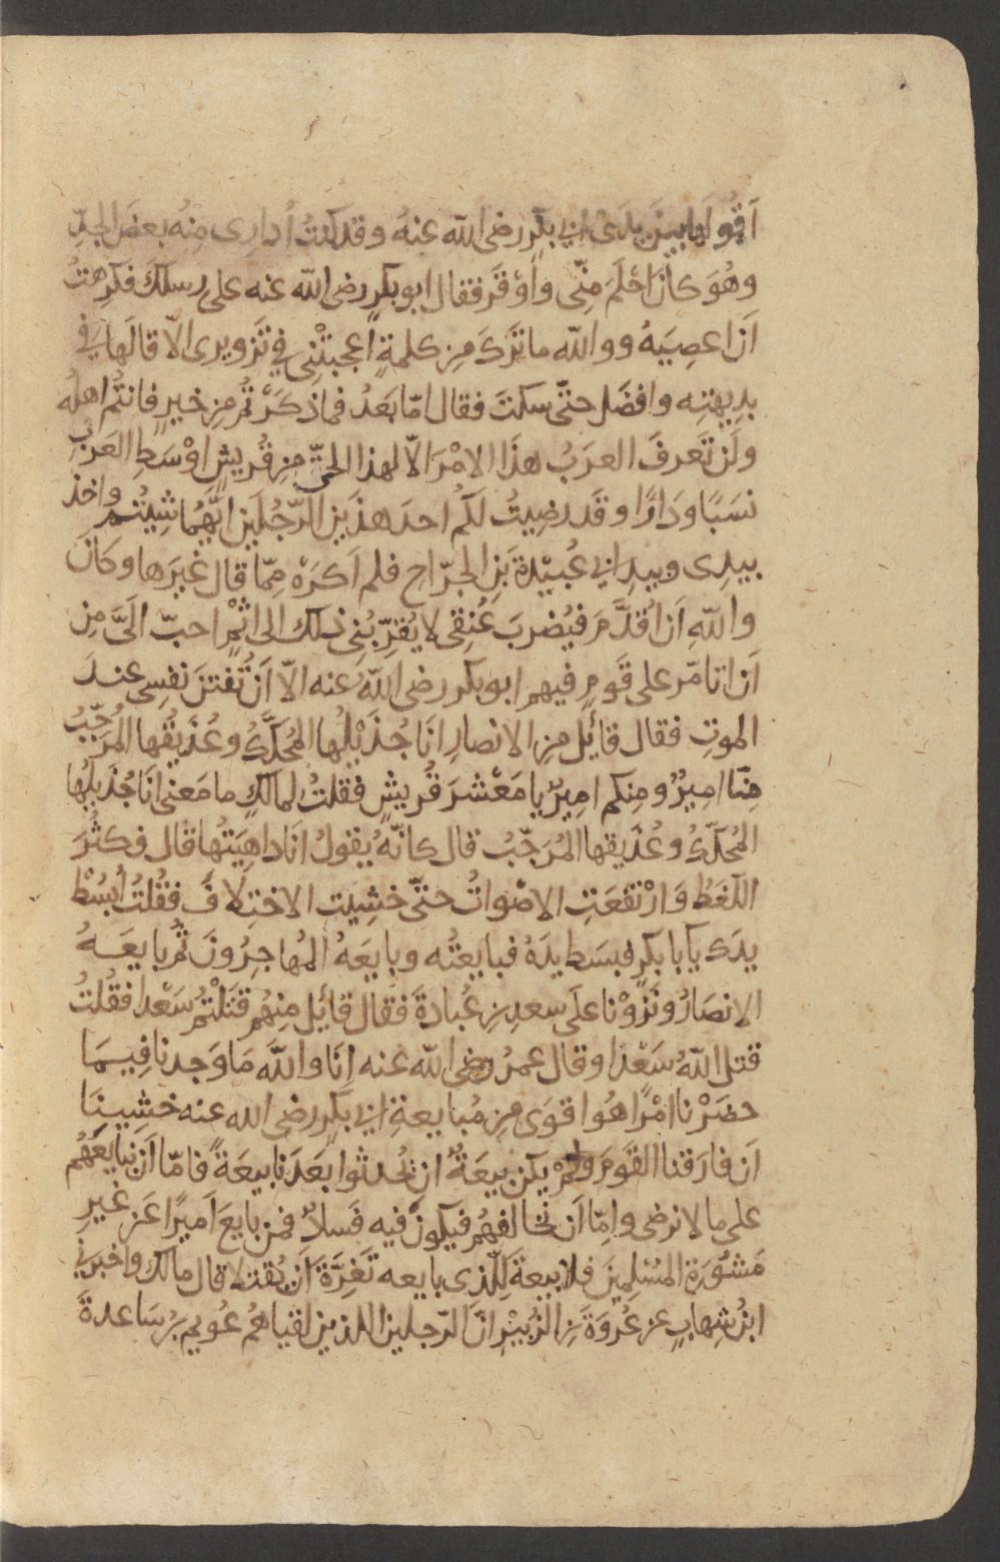 اَقُولها بين يدَى ابي بكرٍ رضى الله عنهُ وقد كنتُ اُدارِى منهُ بعض الحدِّ
وهُوَ كانَ احْلَمَ مِنّى واَوْقَرَ فقال ابوبكرٍ رضى الله عنه على رسلكَ فكرِهتُ
اَن اعصِيَهُ ووالله ماترَكَ مِن كلمةٍ اعجبتْنِى في تَزويرى الاّ قالَها في
بدِيهتِه وافضَل حتّى سكتَ فقال امّا بَعدُ فما ذكَرْتُم مِن خيرٍ فانتُم اهلُه
ولَن تَعرفَ العرَبُ هذَا الامْرَ الاّ لهذا الحيِّ مِن قُريشٍ اوْسَطِ العرَبِ
نسَبًا ودَارًا وقَد رضِيتُ لكُم احدَ هذَين الرّجُلَين ايَّهُما شِيتُم واخذ
بيدِى وبيدِ ابي عُبيْدةَ بنِ الجرّاح فلم اَكرَهْ مِمّا قال غيرَها وكانَ
واللّهِ اَن اُقدَّمَ فيُضربَ عُنِقى لا يُقرِّبُنِى ذلك الى اثْمٍ احبّ الَىَّ مِن
اَن اتامّر على قَومٍ فيهم ابوبكر رضى اللّه عنه الاّ اَن تُفتنَ نفسِى عندَ
الموتِ فقال قائِل مِن الانصارِ انَا جُذَيْلُها المُحَكَّكُ وعُذَيقُها المُرَجّبُ
مِنّا اميرٌ ومِنكم اميرٌ يا مَعْشرَ قُريشٍ فقلتُ لمالكٍ ما مَعنى انَا جُذَيلُها
المُحكّكُ وعُذَيقها المُرَجّبُ قال كانّهُ يقولُ انَا داهِيَتُها قال فكثُرَ
اللّغَطُ وَارْتفعَتِ الاصْواتُ حتّى خشِيت الاختِلافَ فقُلتُ اُبسُطْ
يدَك يابا بكرٍ فبسَط يدَهُ فبايعتُه وبايَعهُ المُهاجرُونَ ثُمّ بايعَــهُ
الانصَارُ ونَزَوْنا علَى سعدِ بنِ عُبادةَ فقال قائِل مِنهُم قتَلْتُمْ سَعْدا فقُلتُ
قتل اللّهُ سَعْدًا وقال عمرُ رضى الله عنه اِنّا واللّه مَا وَجدنا فِيمَا
حضَرْنا امْرًا هُو اقوَى مِن مُبايعةِ ابي بكرٍ رضى الله عنه خشِينَا
اَن فارَقنا القَومَ ولَمْ يكن بيعَةٌ ان يُحدثوا بَعدَنا بيعَةً فامّا اَن نبايعَهُم
على ما لا نرضى وامِّا اَن نخالفهُم فيكونَ فيه فسلا فمن بايعَ اميرًا عَن غيرِ
مَشُورَةِ المُسْلِمينَ فلا بيعةَ لِلّذى بايعه تَغِرَّةَ اَن يُقتلا قال مالك واخبرنى
ابنُ شِهابٍ عن عُروَةَ بن الزُبَيْرِ انّ الرّجلين اللذين لقياهُم عُويم بنُ سَاعدةَ